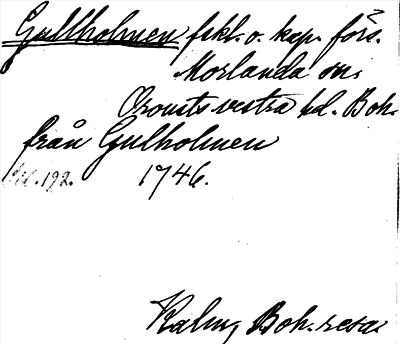 Gullholmen fskl. o. kap. förs.
Morlanda sn.
Orousts vestra hd. Boh.
från Gulholmen
sid. 192. 1746.
Kalm, Boh. resa.